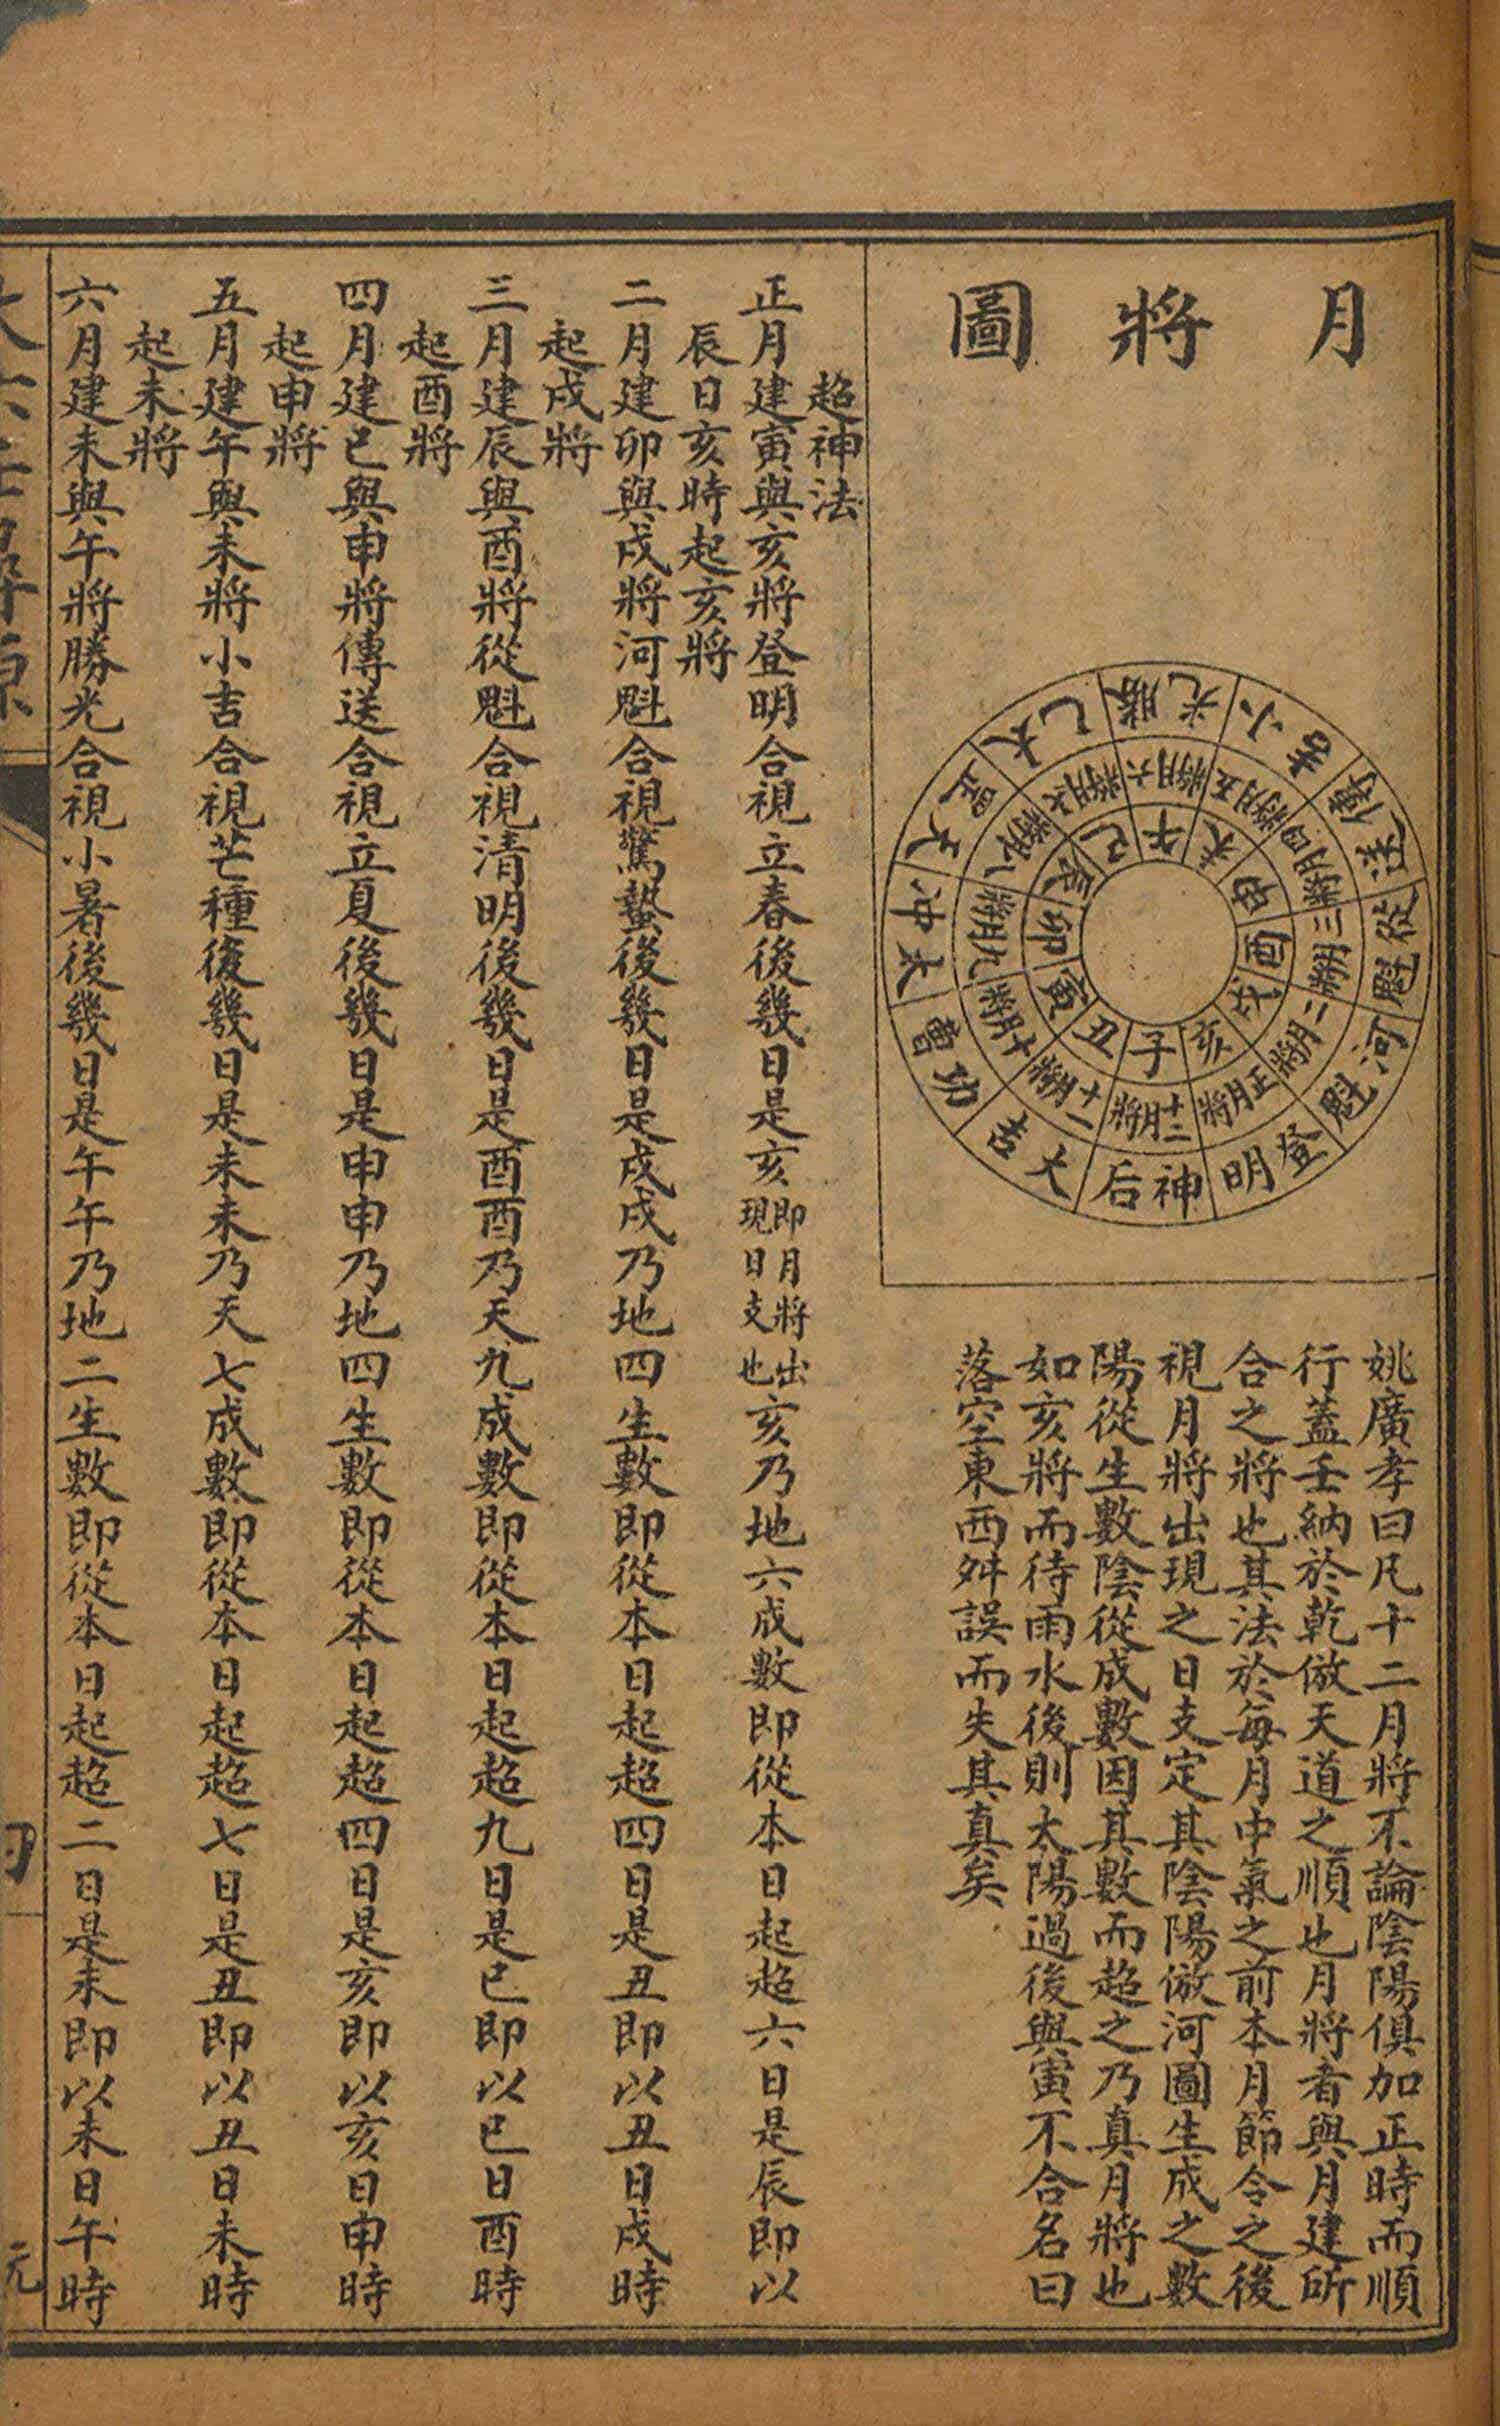 月將圖
小吉
勝光
太乙
天罡
太冲
功曹
大吉
神后
登明
河魁
從魁
傳送
五月將
六月將
七月將
八月將
九月將
十月將
十一月將
十二月將
正月將
二月將
三月將
四月將
未
午
巳
辰
卯
寅
丑
子
亥
戌
酉
申
姚廣孝曰凡十二月將不論陰陽俱加正時而順
行蓋壬納於乾倣天道之順也月將者與月建所
合之將也其法於每月中氣之前本月節令之後
視月將出現之日支定其陰陽倣河圖生成之數
陽從生數陰從成數因其數而超之乃真月將也
如亥將而待雨水後則太陽過後與寅不合名曰
落空東西舛誤而失其真矣
超神法
正月建寅與亥將登明合視立春後幾日是亥即月將出現日支也亥乃地六成數即從本日起超六日是辰即以
辰日亥時起亥將
二月建卯與戌將河魁合視驚蟄後幾日是戌戌乃地四生數即從本日起超四日是丑即以丑日戌時
起戌將
三月建辰與酉將從魁合視清明後幾日是酉酉乃天九成數即從本日起超九日是巳即以巳日酉時
起酉將
四月建巳與申將傳送合視立夏後幾日是申申乃地四生數即從本日起超四日是亥即以亥日申時
起申將
五月建午與未將小吉合視芒種後幾日是未未乃天七成數即從本日起超七日是丑即以丑日未時
起未將
六月建未與午將勝光合視小暑後幾日是午午乃地二生數即從本日起超二日是未即以未日午時